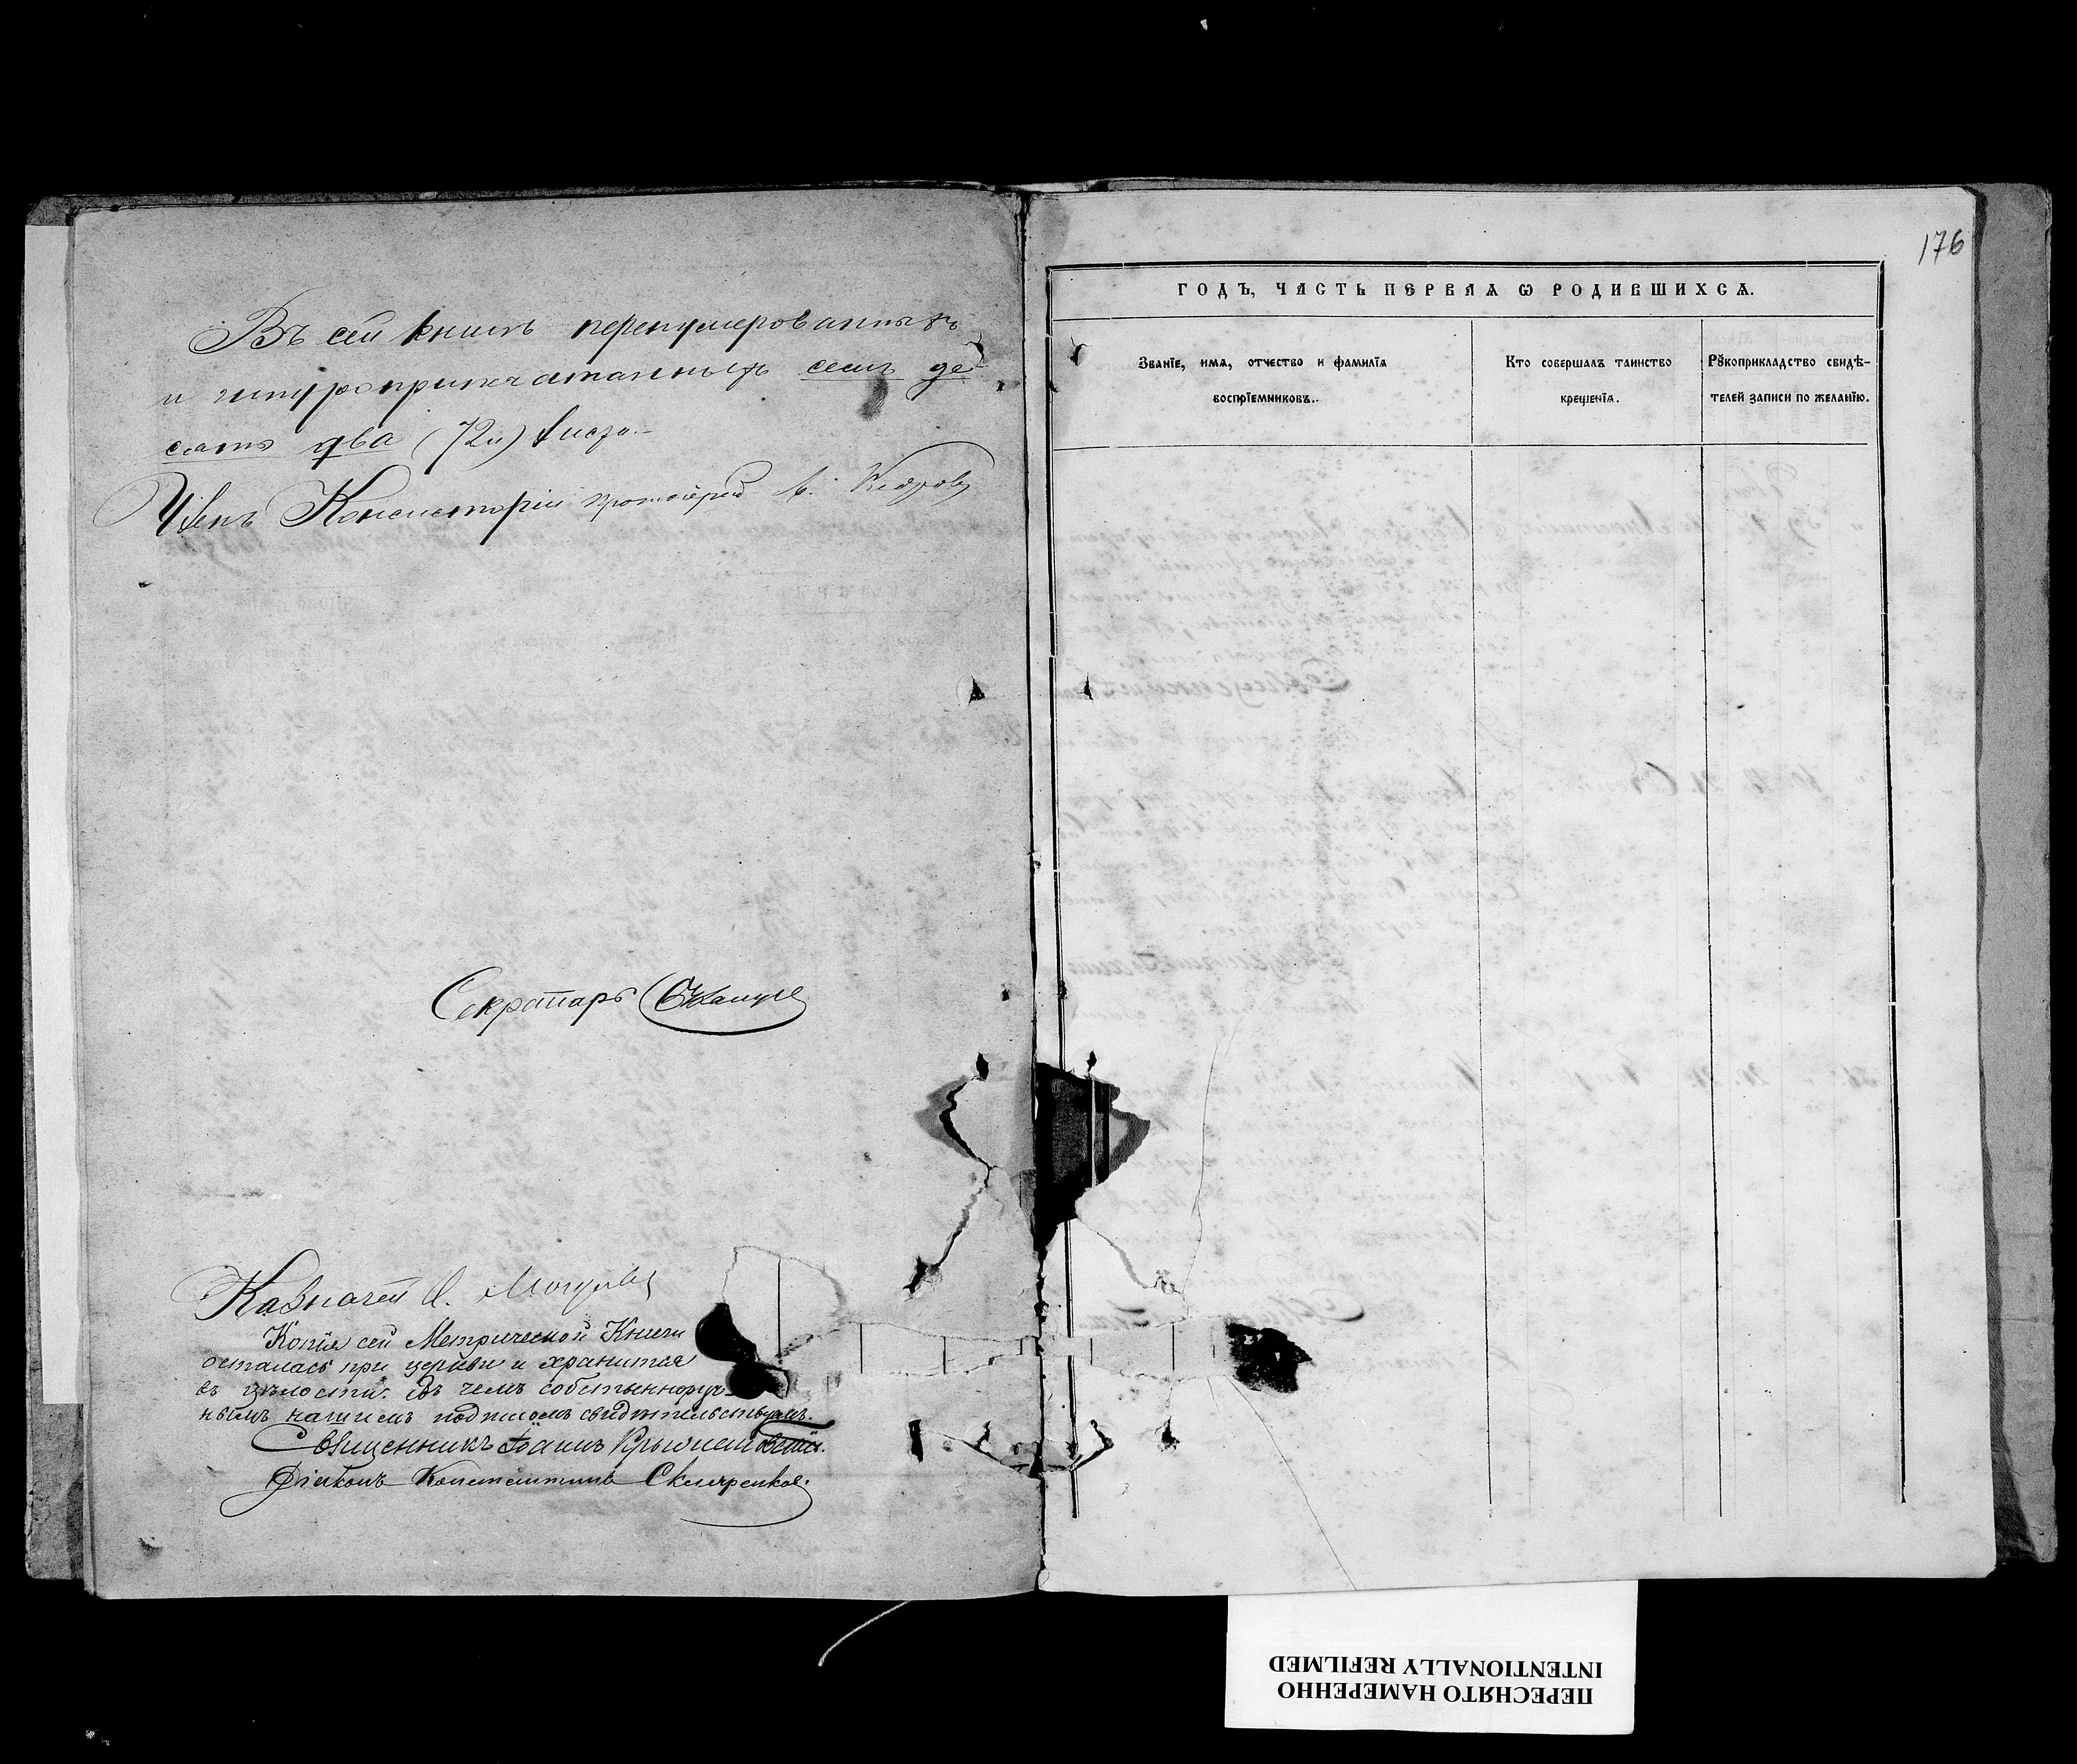 Въ сей книгѣ перенумерованныхъ
и шнуроприпечатанныхъ семь де
сять два (72и) листа.
Членъ Консисторіи протоіерей
Секретарь
Казначей
Копія сей Метрической Книги
осталась при церкви и хранится
въ цѣлости. Въ чемъ собственноруч-
нымъ нашимъ подписомъ свидѣтельствуемъ.
Священникъ Іоаннъ
Діаконъ Константинъ
176
ГОДЪ, ЧАСТЬ ПЕРВАѦ Ѡ РОДИВШИХСѦ.
Званїе, имѧ, отчество и фамилїѧ
воспрїемниковъ.
Кто совершалъ таинство
крещенїѧ.
Рꙋкоприкладство свидѣ-
телей записи по желанїю.
ПЕРЕСНЯТО НАМЕРЕННО
INTENTIONALLY REFILMED